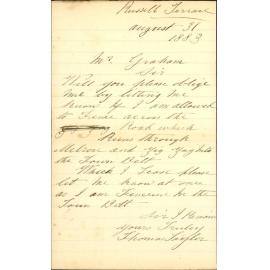 Russell Terrace
August 31
1883
Mr Graham
Sir
Will you please oblige
me by letting me
know if I am allowed
to Fence across the
Road which
Runs through
Melron and Zig Zag to
the Town Belt
Which I Lease please
let me know at once
as I am Fenceing in the
Town Belt
Sir I Remain
yours Truley
Thomas Taylor